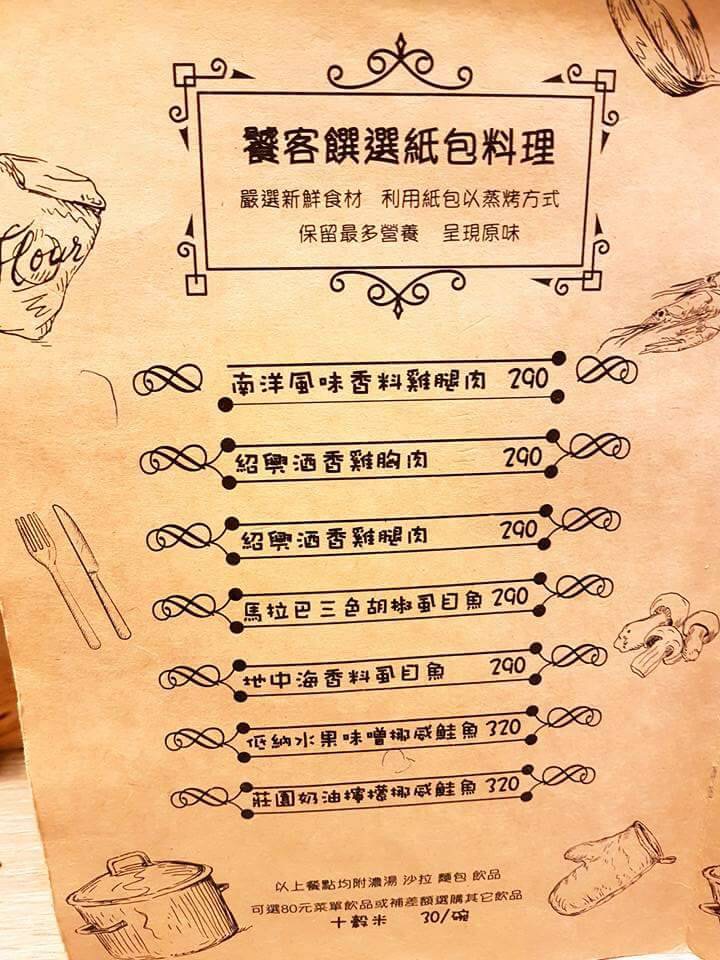 flour
饕客饌選紙包料理
嚴選新鮮食材 利用紙包以蒸烤方式
保留最多營養 呈現原味
南洋風味香料雞腿肉 290
紹興酒香雞胸肉 290
紹興酒香雞腿肉 290
馬拉巴三色胡椒虱目魚 290
地中海香料虱目魚 290
低納水果味噌挪威鮭魚 320
莊園奶油檸檬挪威鮭魚 320
以上餐點均附濃湯 沙拉 麵包 飲品
可選80元菜單飲品或補差額選購其它飲品
十穀米 30/碗